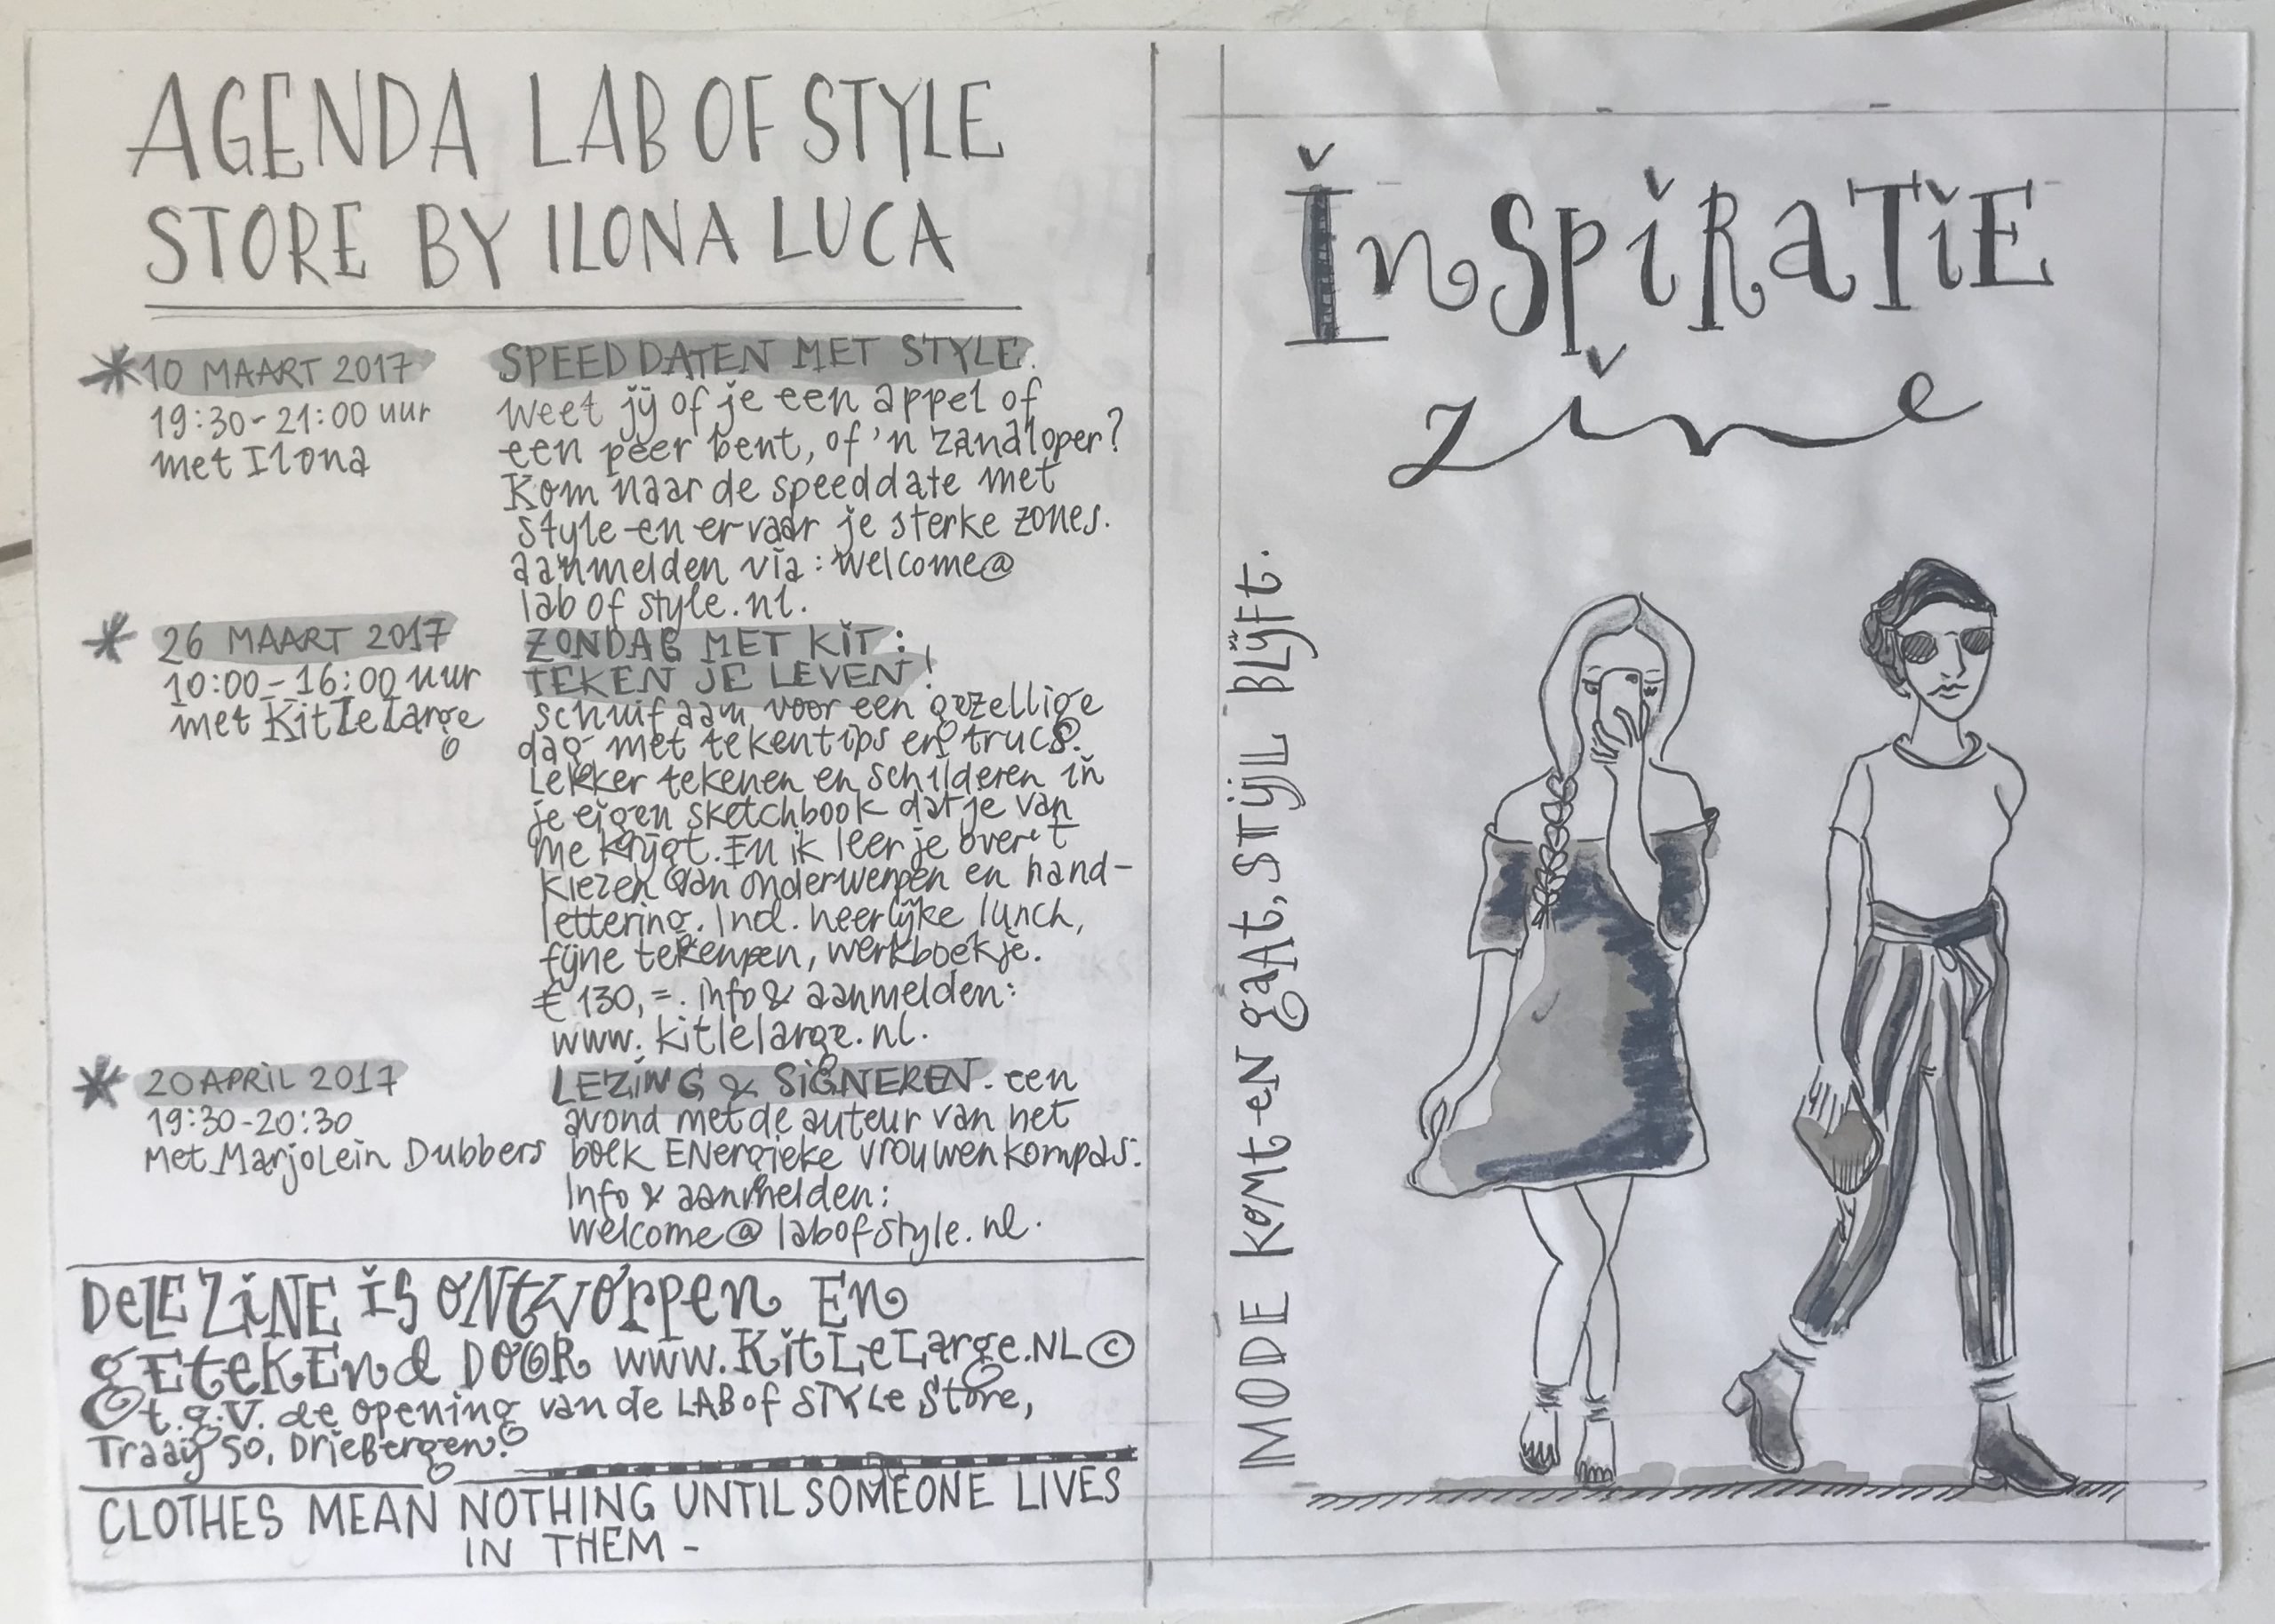 AGENDA LAB OF STYLE
STORE BY ILONA LUCA
* 10 MAART 2017
19:30-21:00 uur
met Ilona
SPEED DATEN MET STYLE.
weet jij of je een appel of
een peer bent, of 'n zandloper?
Kom naar de speeddate met
style en ervaar je sterke zones.
aanmelden via: welcome@
labofstyle.nl.
* 26 MAART 2017
10:00-16:00 uur
met Kitlelarge
ZONDAG MET KIT:
TEKEN JE LEVEN!
schuif aan voor een gezellige
dag met tekentips en trucs.
Lekker tekenen en schilderen in
je eigen sketchbook dat je van
me krijgt. En ik leer je over 't
kiezen van onderwerpen en hand-
lettering. Incl. heerlijke lunch,
fijne tekenpen, werkboekje.
€ 130,=. info & aanmelden:
www.kitlelarge.nl.
* 20 APRIL 2017
19:30-20:30
Met Marjolein Dubbers
LEZING & SIGNEREN. een
avond met de auteur van het
boek ENergieke vrouwenkompas.
Info & aanmelden:
welcome@labofstyle.nl.
DeZE ZiNE is ONTWorppen EN
gETEKENd DOOR www.KitLeLarge.NL ©
t.g.v. de opening van de LAB of STYLe Store,
Traaij 50, DrieBergen.
CLOTHES MEAN NOTHING UNTIL SOMEONE LIVES
IN THEM -
InSpiRaTiE
zine
MODE KOMT EN gaAT, STIJL BLIJFT.